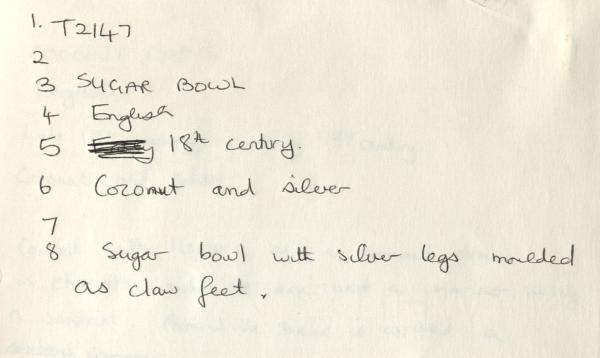 1. T2147
2
3 SUGAR BOWL
4 English
5 18th century.
6 Coconut and silver
7
8 Sugar bowl with silver legs moulded
as claw feet.